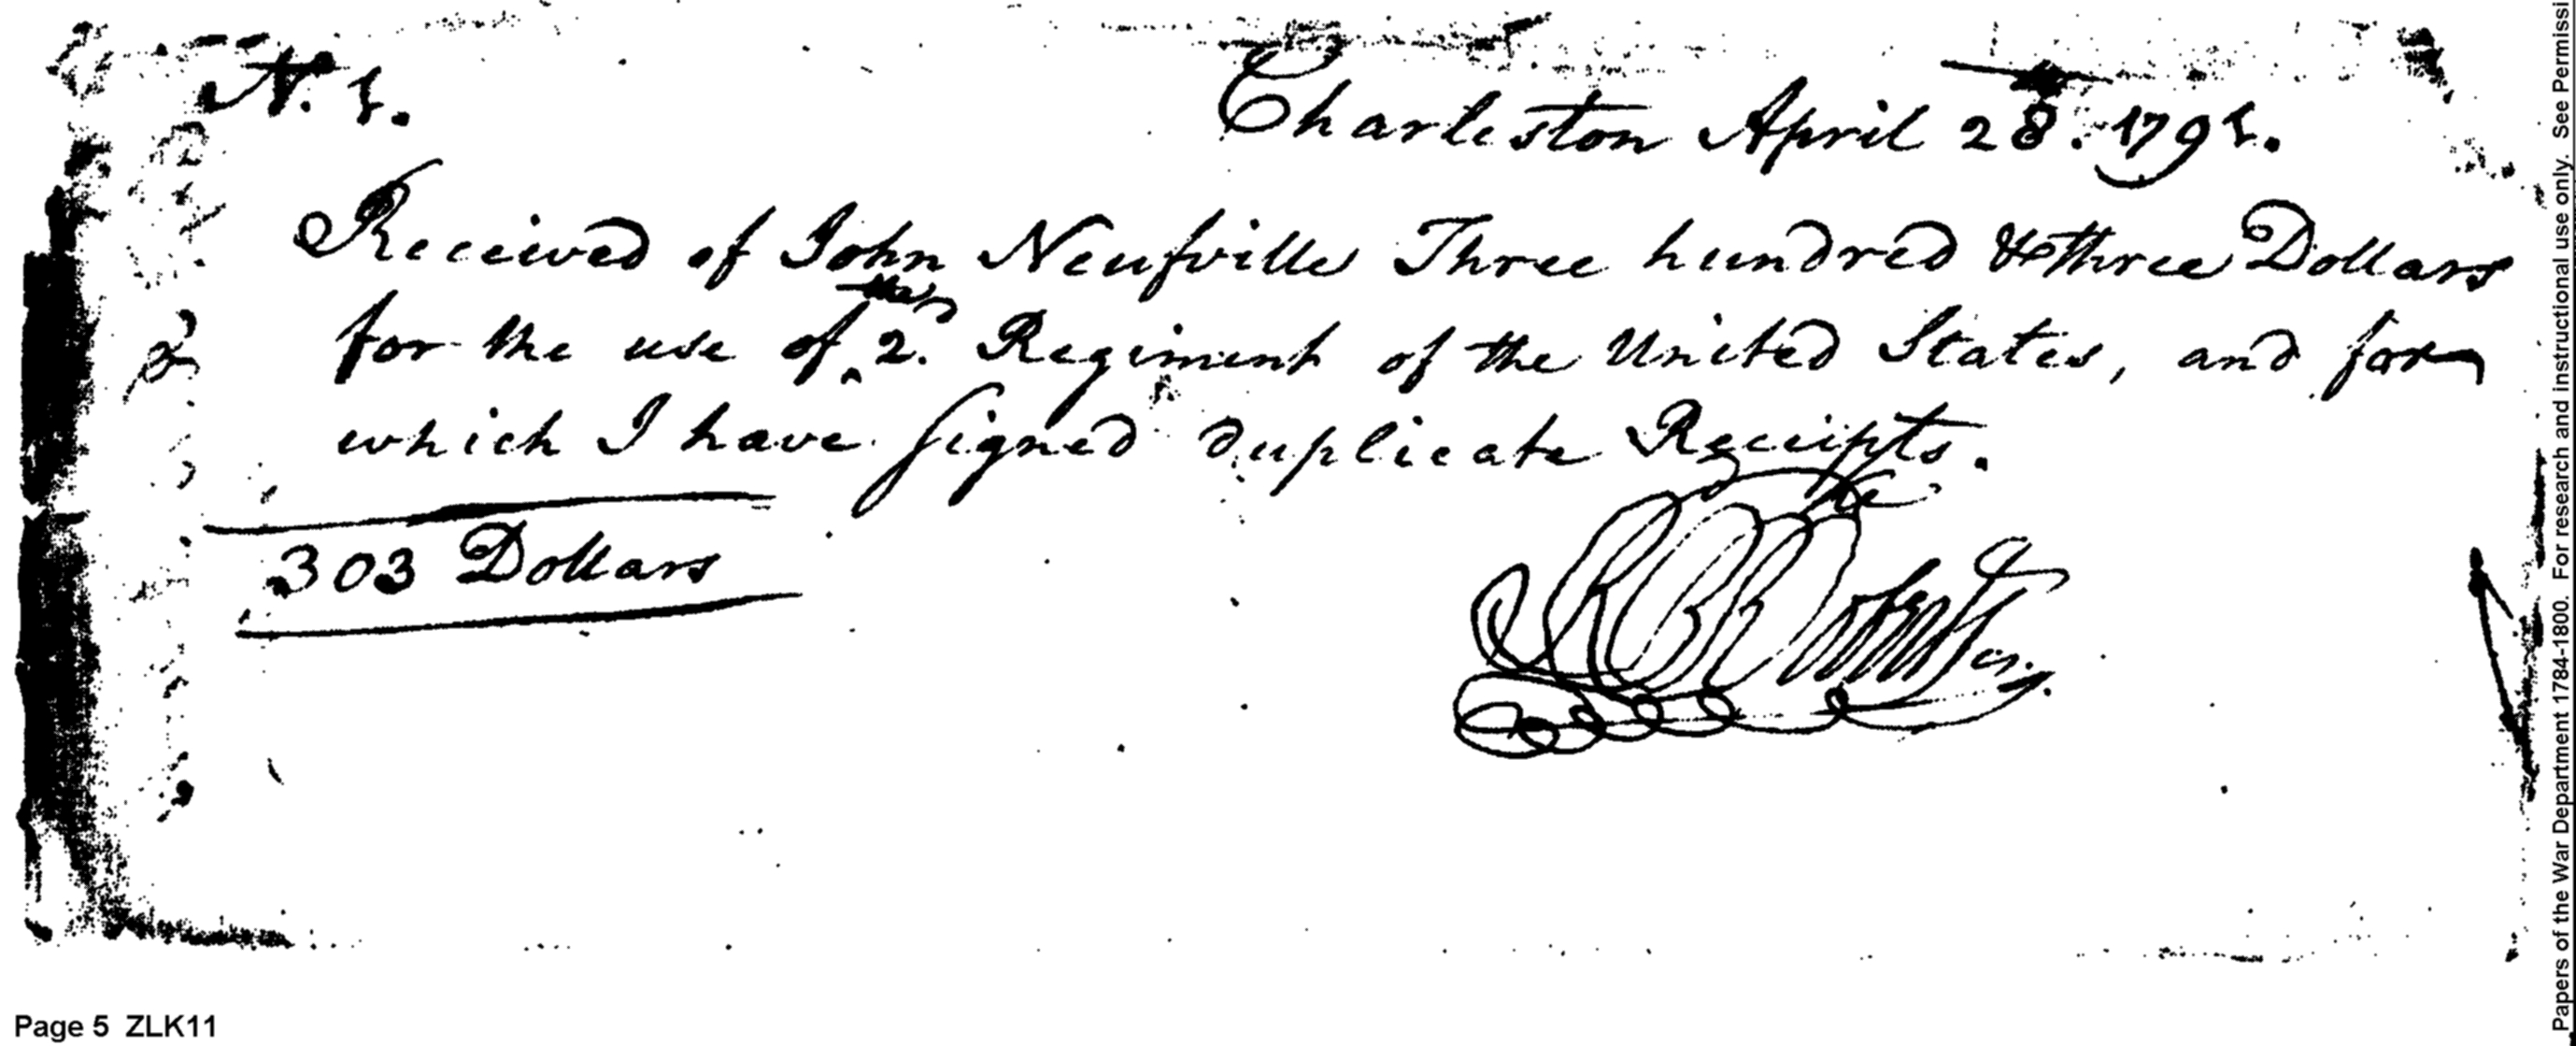 N. 1.
Charleston April 28. 1791.
Received of John Neufville Three hundred & three Dollars
for the use of the 2d. Regiment of the United States, and for
which I have signed duplicate Receipts.
303 Dollars
RBRoberts
Page 5 ZLK11
Papers of the War Department 1784-1800. For research and instructional use only. See Permissi